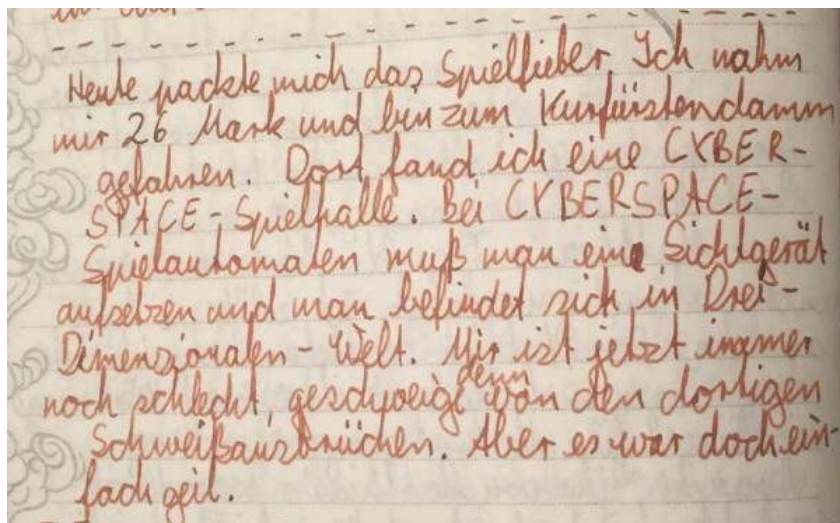 Heute packte mich das Spielfieber. Ich nahm
mir 26 Mark und bin zum Kurfürstendamm
gefahren. Dort fand ich eine CYBER-
SPACE-Spielhalle. Bei CYBERSPACE-
Spielautomaten muß man ein Sichtgerät
aufsetzen und man befindet sich in Drei-
Dimensionalen-Welt. Mir ist jetzt immer
noch schlecht, geschweige denn von den dortigen
Schweißausbrüchen. Aber es war doch ein-
fach geil.